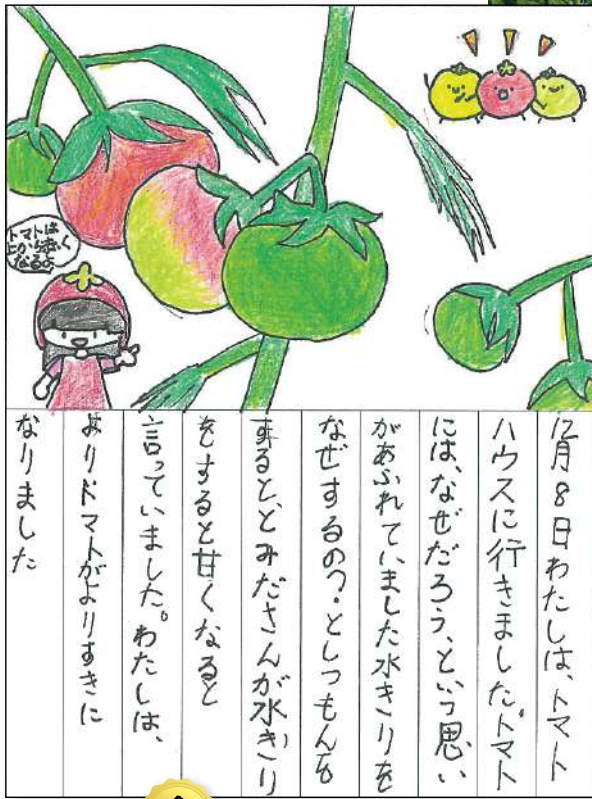 トマトは
上から赤く
なるよ
12月8日わたしは、トマト
ハウスに行きました。トマト
には、なぜだろう、という思い
があふれていました水きりを
なぜするの?としつもんを
すると、とみださんが水ぎり
をすると甘くなると
言っていました。わたしは、
よりトマトがよりすきに
なりました